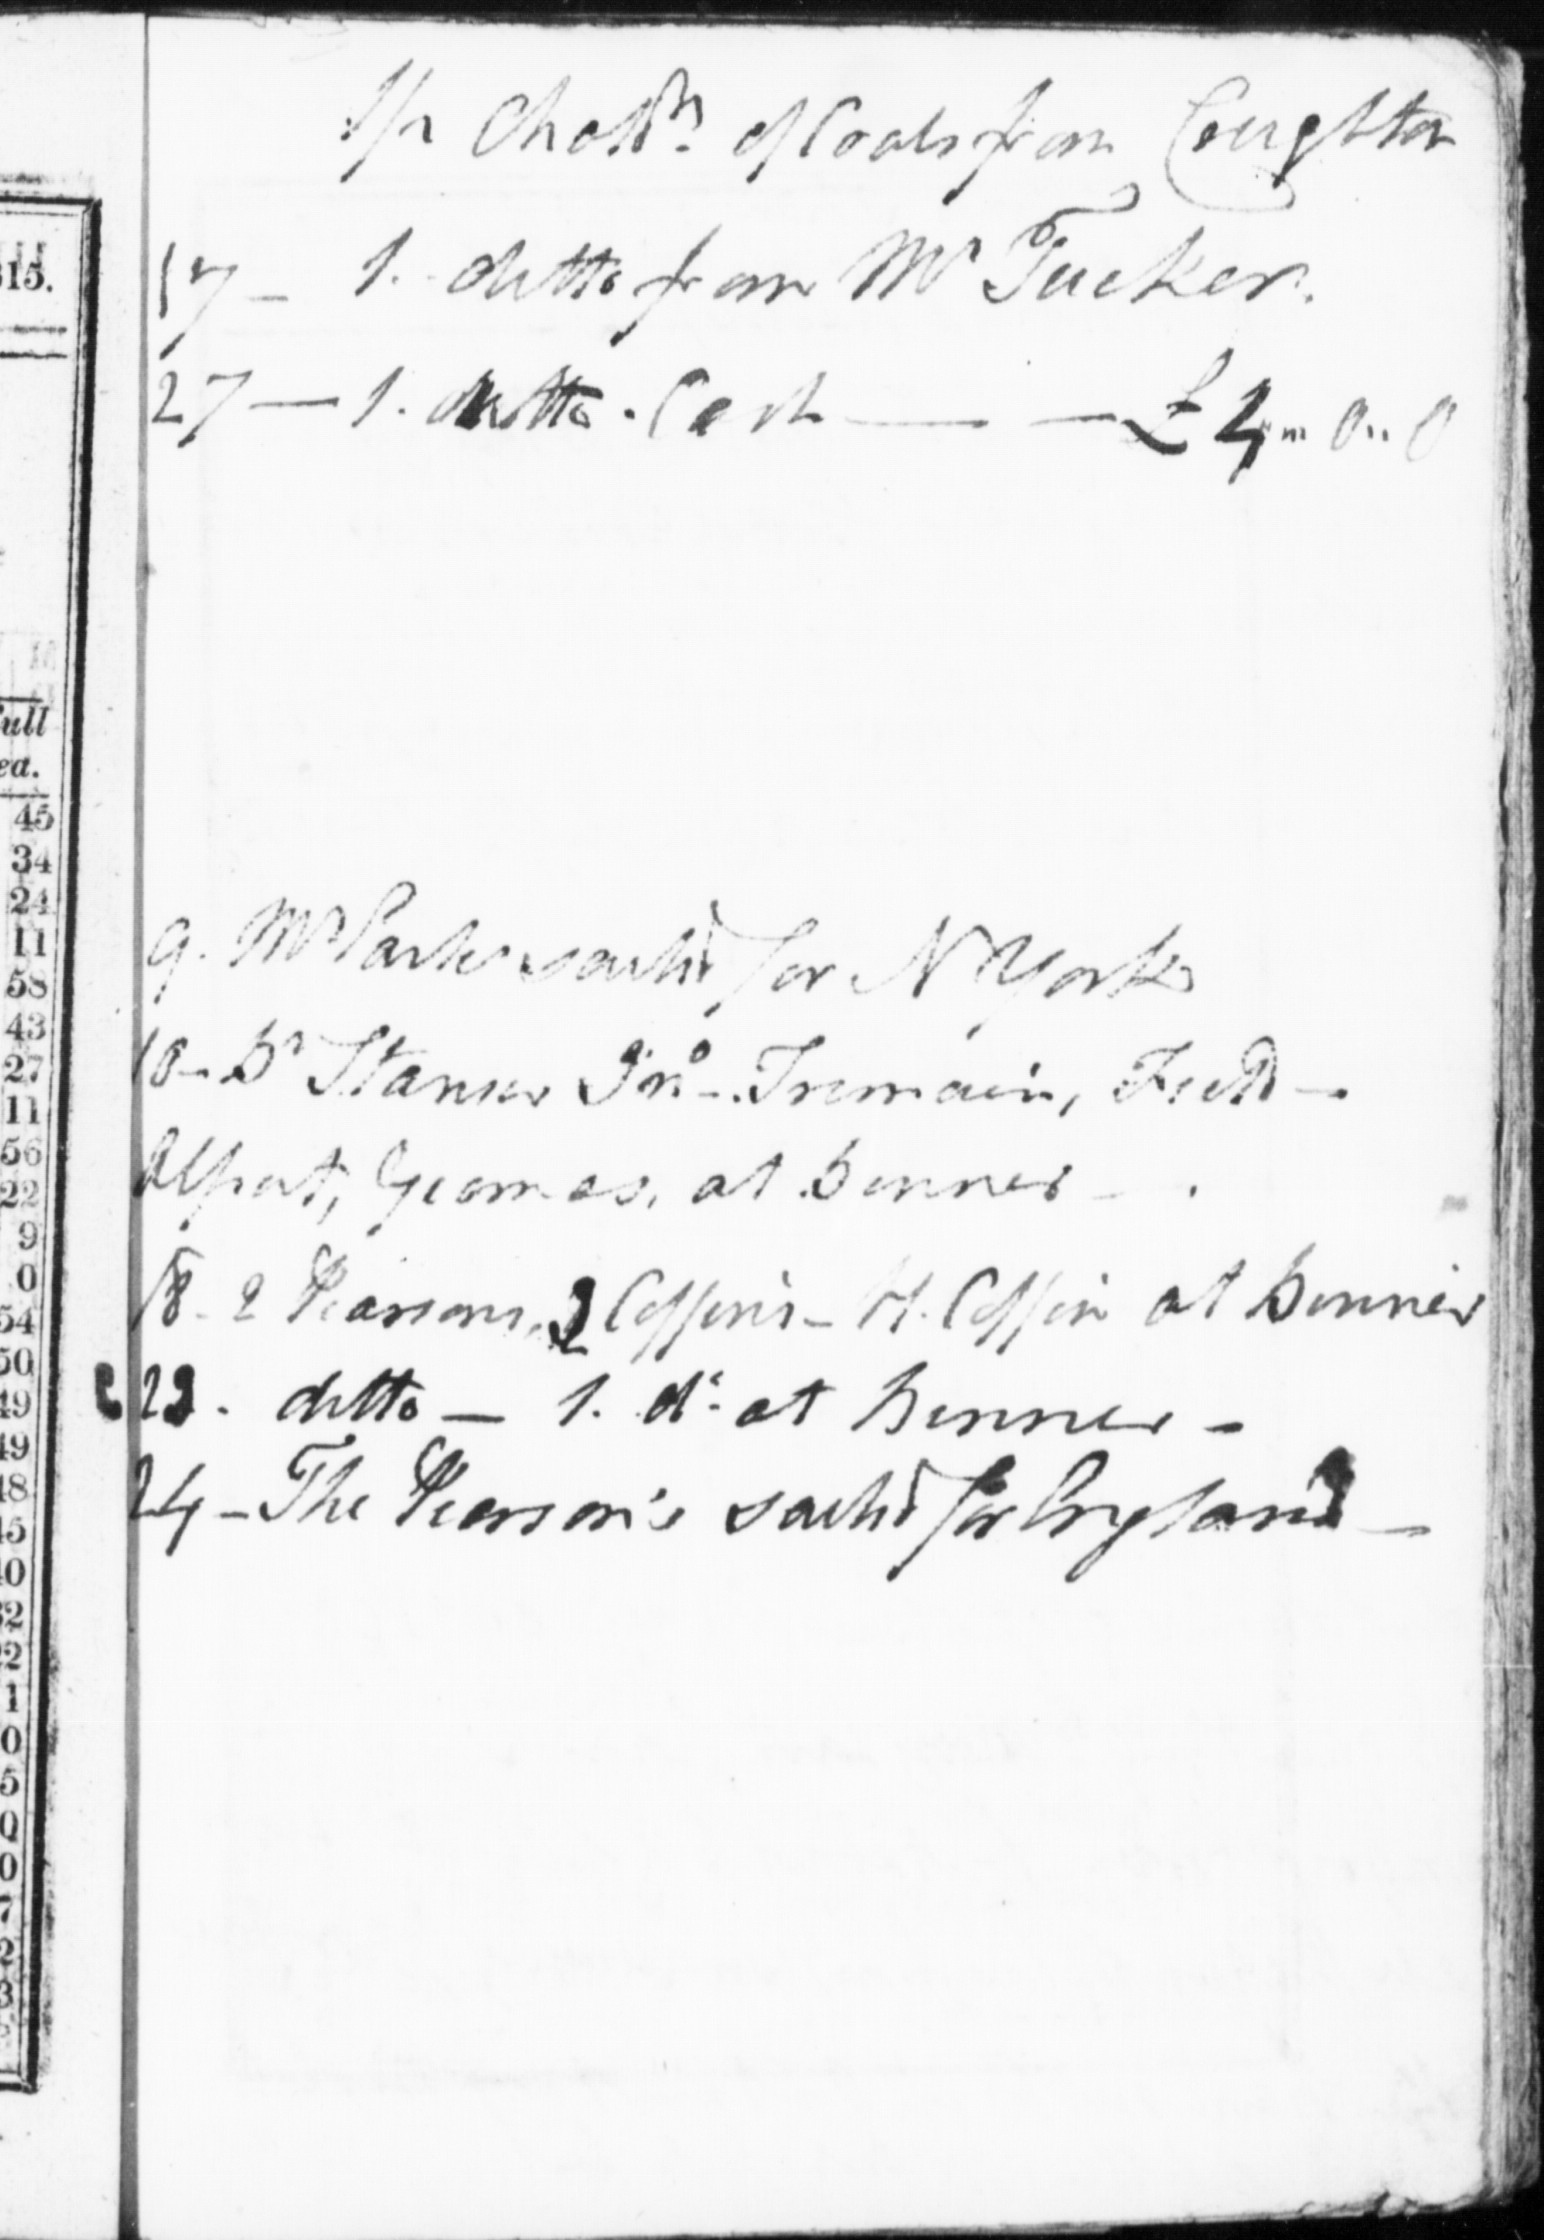 1/2 Chaldn. of Coals from Coughton
17 - 1. ditto from Mr Tucker.
27 - 1. ditto. Cash - - £4 " 0 " 0
9. Mr Parker sailed for N York
10 - Dr Stanser Jno. - Tremain, Fred -
at Dinner -
18 - 2 Pearsons, 2 Coffin's - H. Coffin at Dinner
23. ditto - 1. do. at Dinner -
24 - The Pearson's sailed for England -
315.
ull
ea.
45
34
24
11
58
43
27
11
56
22
9
0
54
50
49
49
48
45
40
32
22
1
0
5
0
0
7
2
3